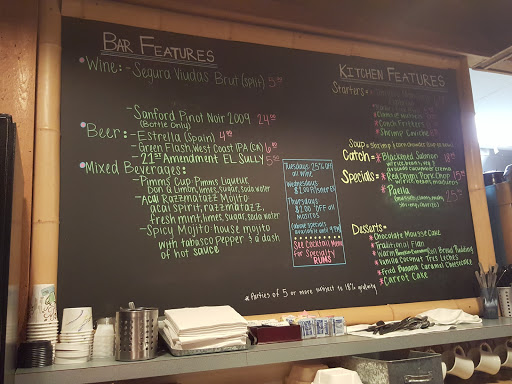 BAR FEATURES
Wine: - Segura Viudas Brut (split) 5.00
- Sanford Pinot Noir 2009 24.00
(Bottle Only)
Beer: - Estrella (Spain) 4.00
- Green Flash, West Coast IPA (CA) 6.00
- 21st Amendment EL SULLY 5.00
Mixed Beverages:
- Pimm's Cup: Pimms Liqueur,
Lime, sugar, soda water
- Acai Razzmatazz Mojito
acai spirit, razzmatazz,
fresh mint, limes, sugar, soda water
- Spicy Mojito: house mojito
with tabasco pepper & a dash
of hot sauce
Tuesdays: 25% off
all wine
Wednesdays:
Thursdays:
$1.00 OFF all
mojitos
(above specials
available until 9 PM)
See Cocktail Menu
For Specialty
RUMS
* Parties of 5 or more subject to 18% gratuity
KITCHEN FEATURES
Starters:
Conch Fritters
Shrimp Ceviche
Soup - Shrimp & Corn Chowder
Catch - Blackened Salmon
Specials: Pork Chop 15
Paella
Desserts:
Chocolate Mousse Cake
Traditional Flan
Warm Bread Pudding
Vanilla Coconut Tres Leches
Fried Banana Caramel Cheesecake
Carrot Cake